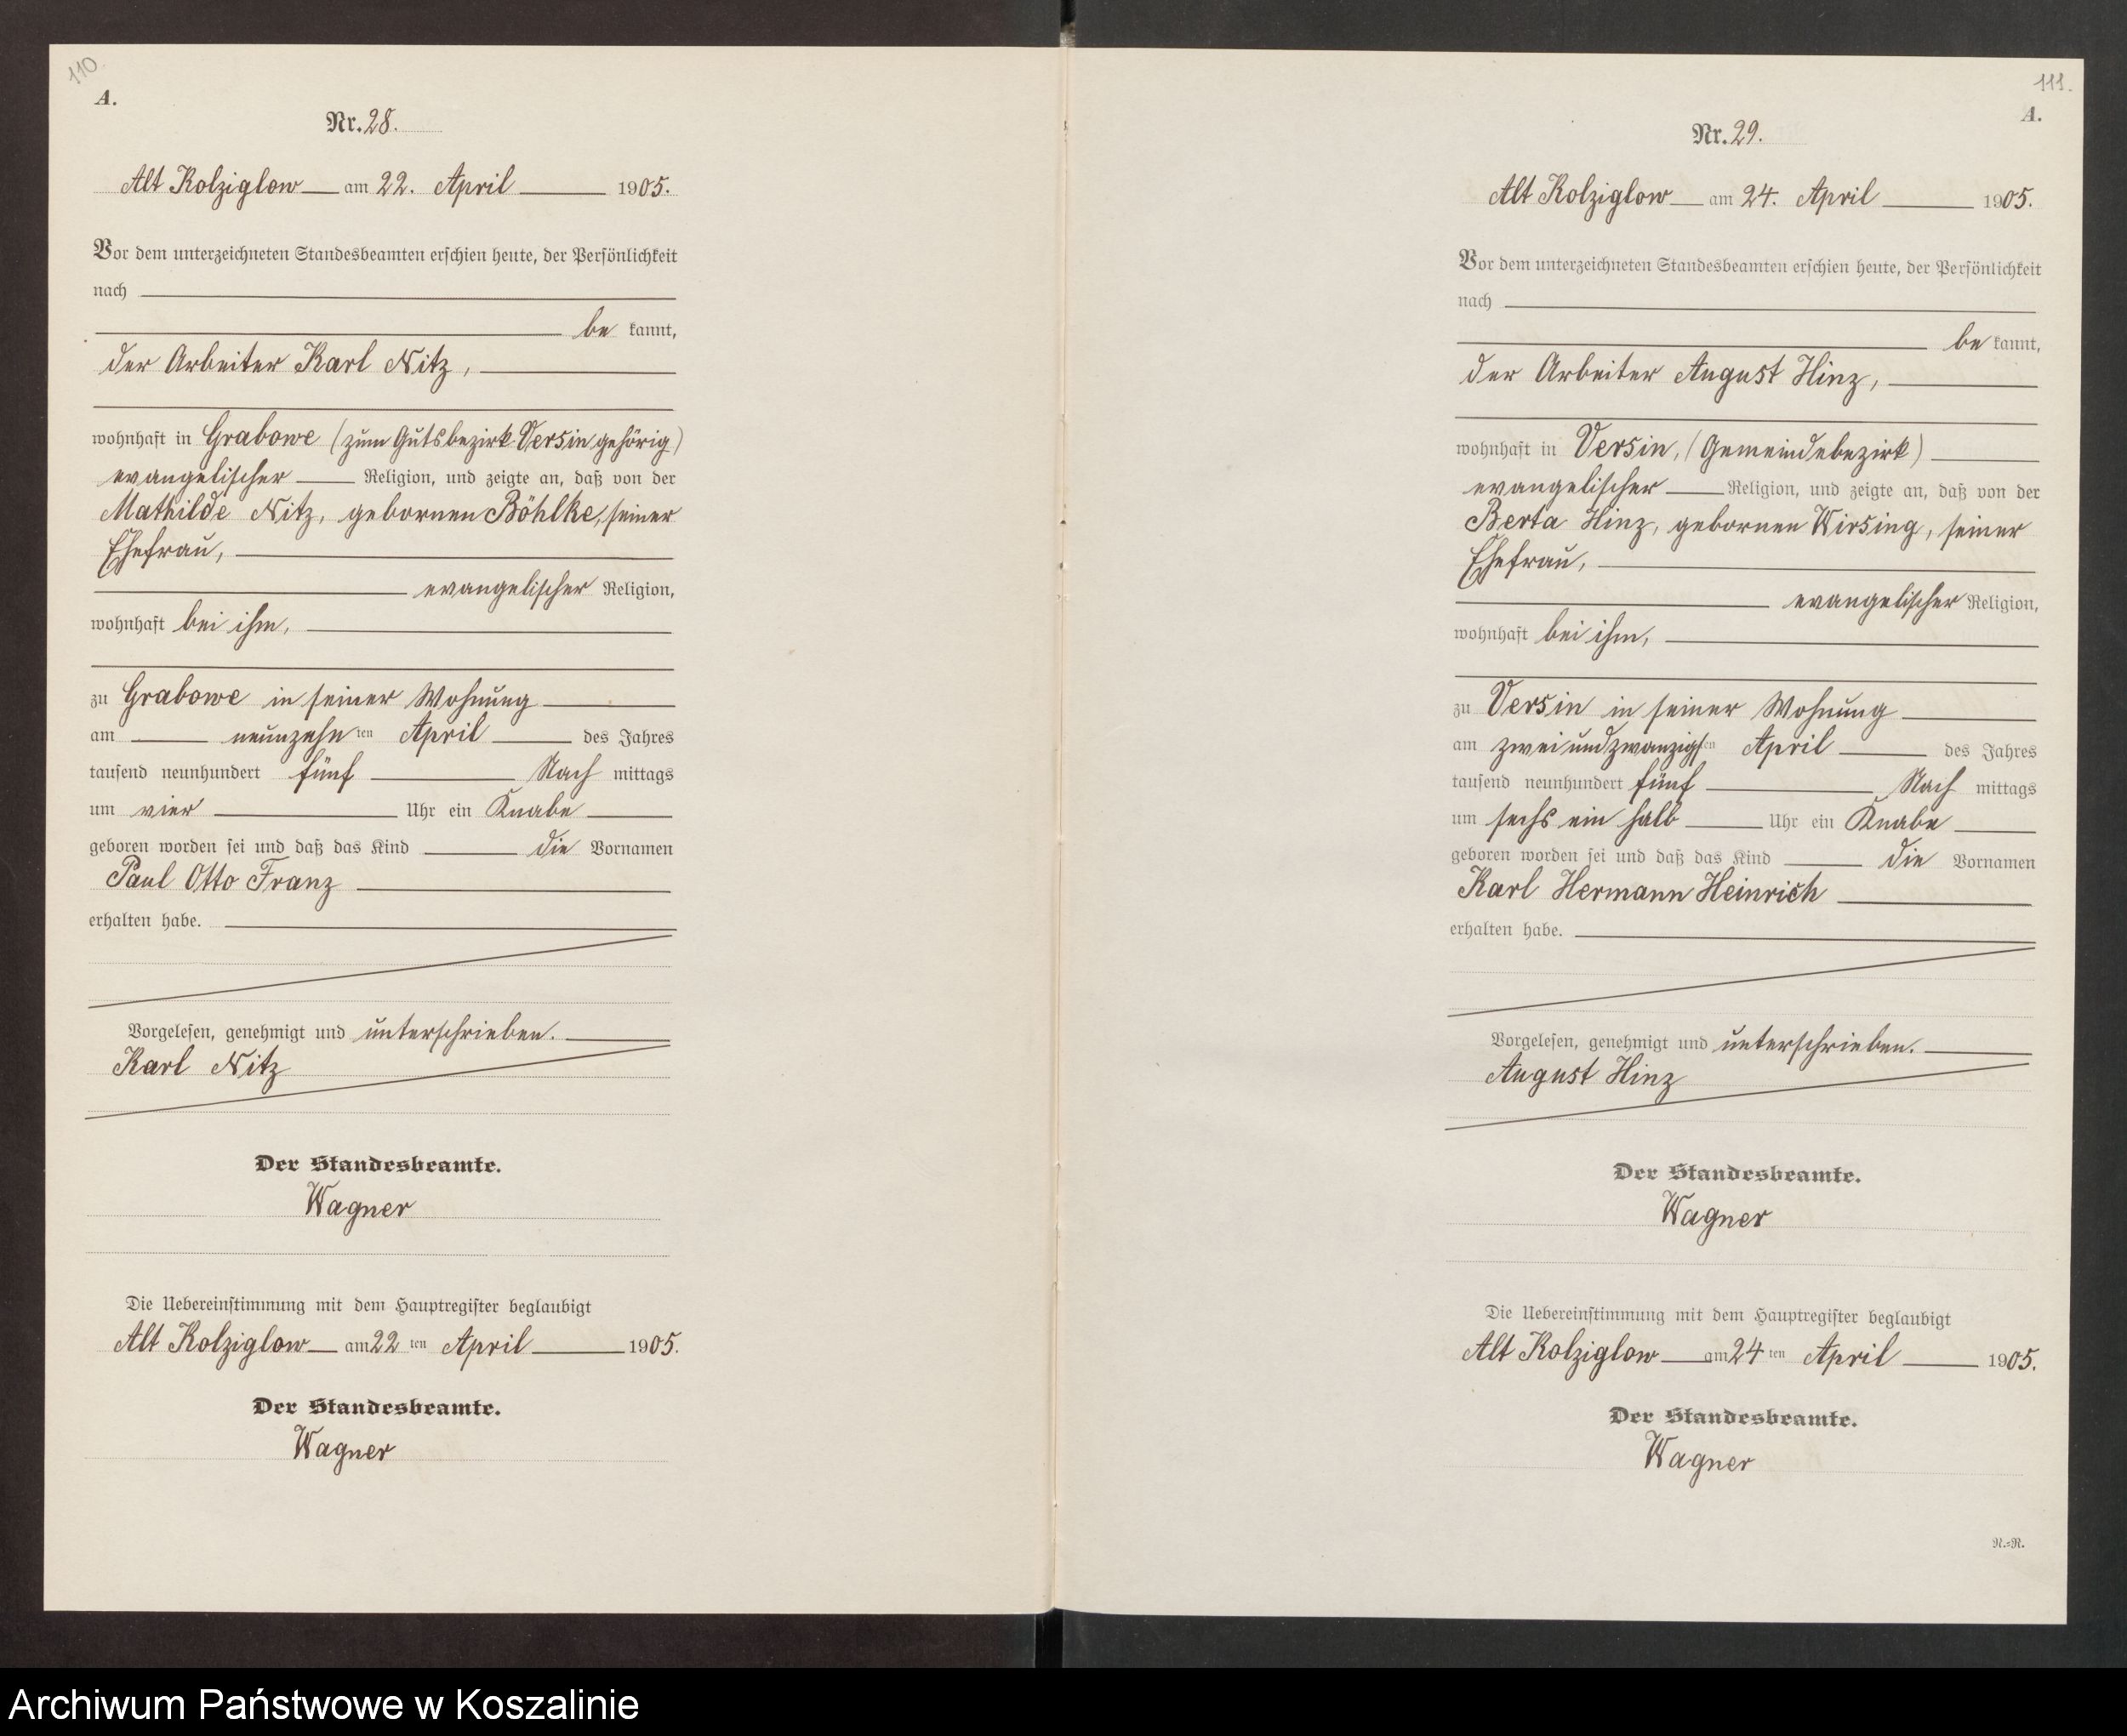 110
A.
Nr. 28.
Alt Kolziglow am 22. April 1905.
Vor dem unterzeichneten Standesbeamten erschien heute, der Persönlichkeit
nach
be kannt,
der Arbeiter Karl Nitz,
wohnhaft in Grabowe (zum Gutsbezirk Versin gehörig)
evangelischer Religion, und zeigte an, daß von der
Mathilde Nitz, gebornen Böhlke, seiner
Ehefrau,
evangelischer Religion,
wohnhaft bei ihm,
zu Grabowe in seiner Wohnung
am neunzehn ten April des Jahres
tausend neunhundert fünf Nach mittags
um vier Uhr ein Knabe
geboren worden sei und daß das Kind die Vornamen
Paul Otto Franz
erhalten habe.
Vorgelesen, genehmigt und unterschrieben.
Karl Nitz
Der Standesbeamte.
Wagner
Die Uebereinstimmung mit dem Hauptregister beglaubigt
Alt Kolziglow am 22 ten April 1905.
Der Standesbeamte.
Wagner
111.
A.
Nr. 29.
Alt Kolziglow am 24. April 1905.
Vor dem unterzeichneten Standesbeamten erschien heute, der Persönlichkeit
nach
be kannt,
der Arbeiter August Hinz,
wohnhaft in Versin, (Gemeindebezirk)
evangelischer Religion, und zeigte an, daß von der
Berta Hinz, gebornen Wirsing, seiner
Ehefrau,
evangelischer Religion,
wohnhaft bei ihm,
zu Versin in seiner Wohnung
am zwei und zwanzigsten April des Jahres
tausend neunhundert fünf Nach mittags
um sechs ein halb Uhr ein Knabe
geboren worden sei und daß das Kind die Vornamen
Karl Hermann Heinrich
erhalten habe.
Vorgelesen, genehmigt und unterschrieben.
August Hinz
Der Standesbeamte.
Wagner
Die Uebereinstimmung mit dem Hauptregister beglaubigt
Alt Kolziglow am 24 ten April 1905.
Der Standesbeamte.
Wagner
N.=R.
Archiwum Państwowe w Koszalinie